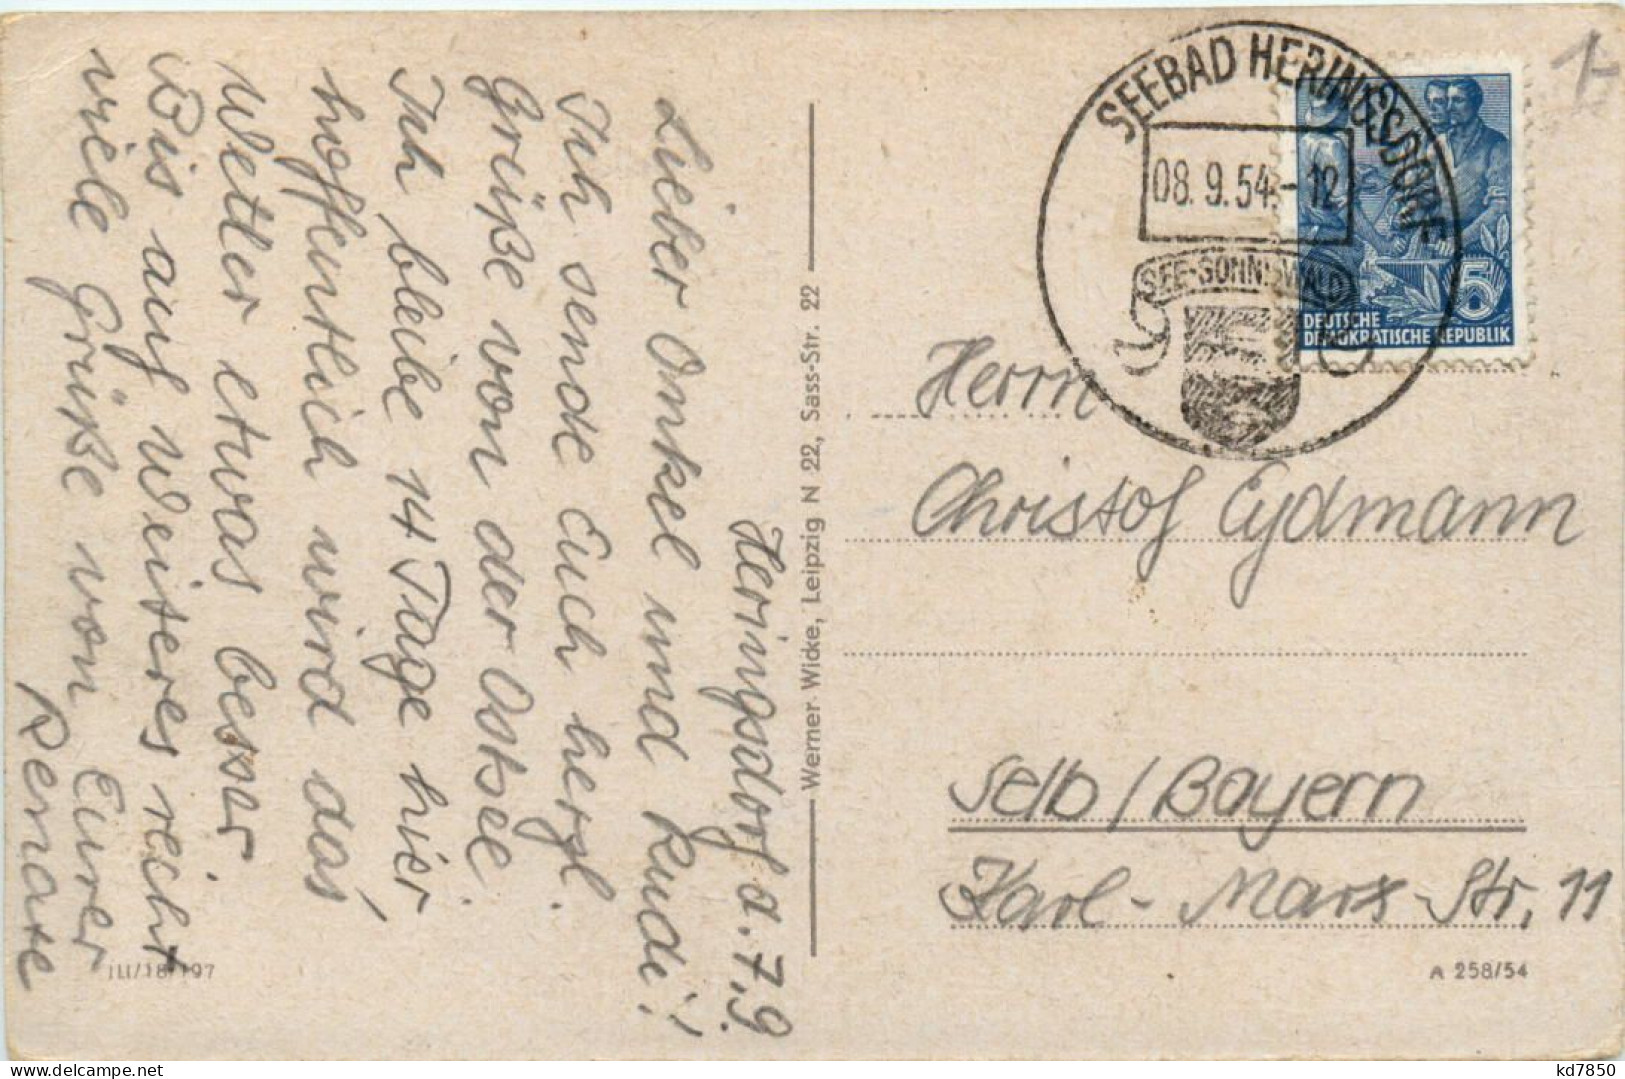 Heringsdorf d. 7.9.
Lieber Onkel und Rudi!
Ich sende Euch herzl.
Grüße von der Ostsee.
Ich bleibe 14 Tage hier
hoffentlich wird das
Wetter etwas besser
Bis auf Weiteres recht
viele Grüße von Eurer
Renate
III/18/197
Werner Wicke, Leipzig N 22, Sass-Str. 22
SEEBAD HERINGSDORF
08.9.54.-12
SEE-SONNE-WALD
5
DEUTSCHE
DEMOKRATISCHE REPUBLIK
Herrn
Christof Eydmann
Selb/Bayern
Karl-Marx-Str. 11
A 258/54
kd7850